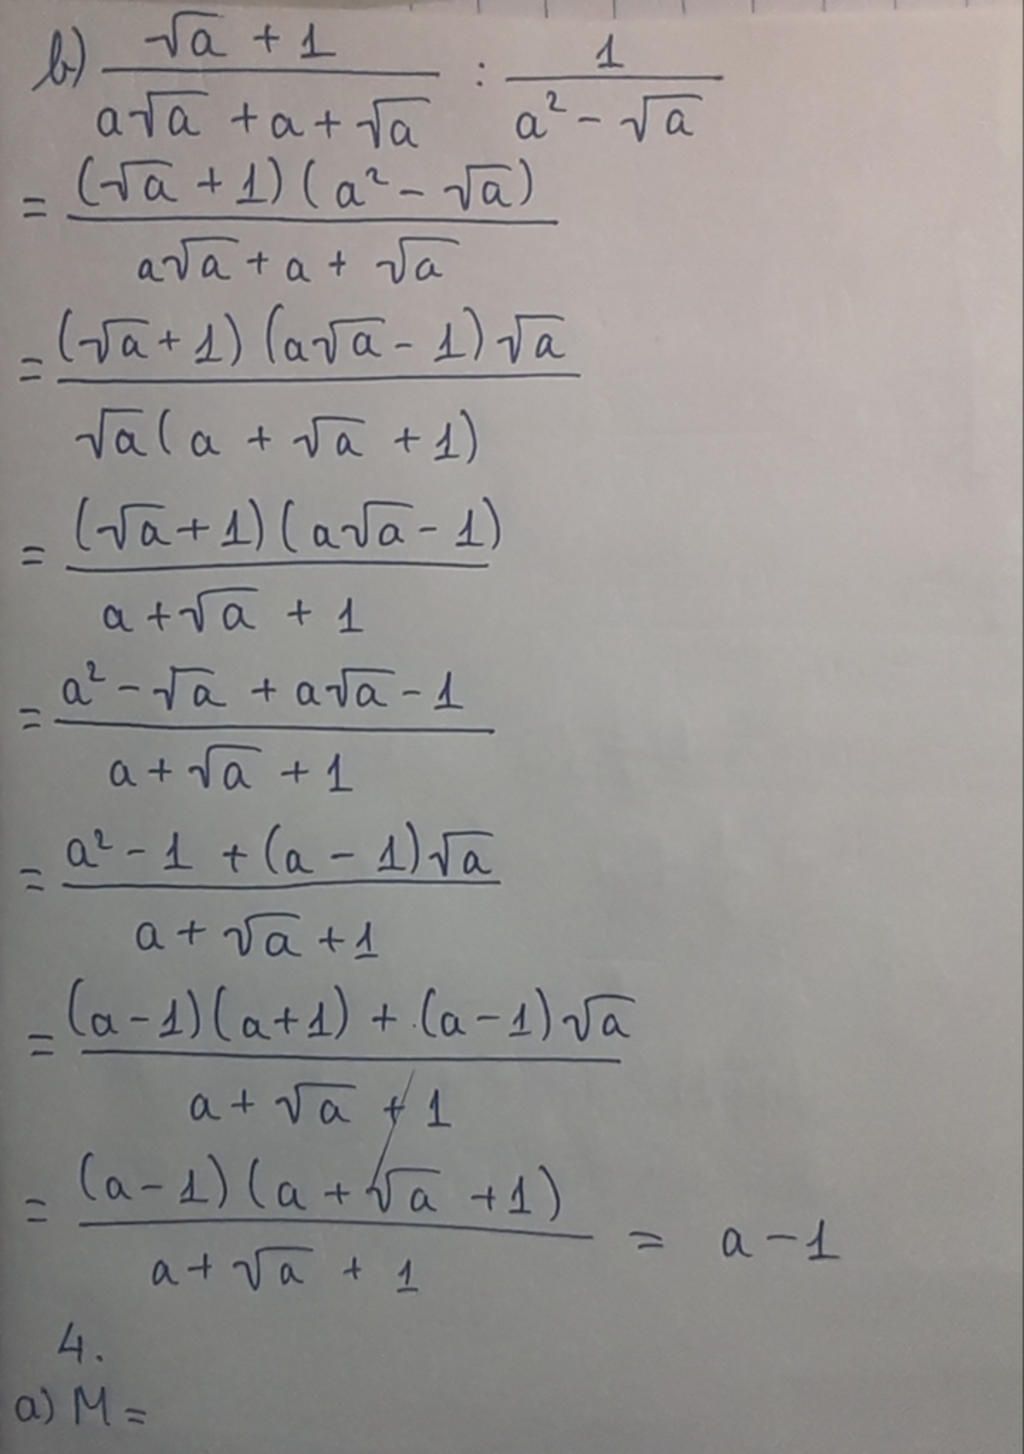 b) (√a + 1)/(a√a + a + √a) : 1/(a² - √a)
= (√a + 1)(a² - √a)/(a√a + a + √a)
= (√a + 1)(a√a - 1)√a/(√a(a + √a + 1))
= (√a + 1)(a√a - 1)/(a + √a + 1)
= (a² - √a + a√a - 1)/(a + √a + 1)
= (a² - 1 + (a - 1)√a)/(a + √a + 1)
= ((a - 1)(a + 1) + (a - 1)√a)/(a + √a + 1)
= (a - 1)(a + √a + 1)/(a + √a + 1) = a - 1
4.
a) M =